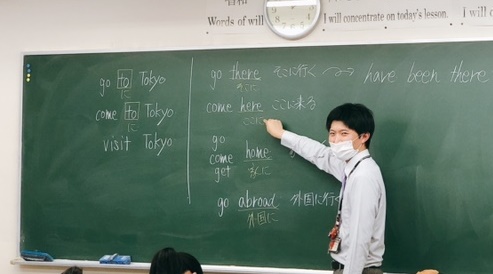 Words of will
I will concentrate on today's lesson.
go to Tokyo
に
come to Tokyo
に
visit Tokyo
go there そこに行く have been there
そこに
come here ここに来る
ここに
go
come home
get 家に
go abroad 外国に行く
外国に